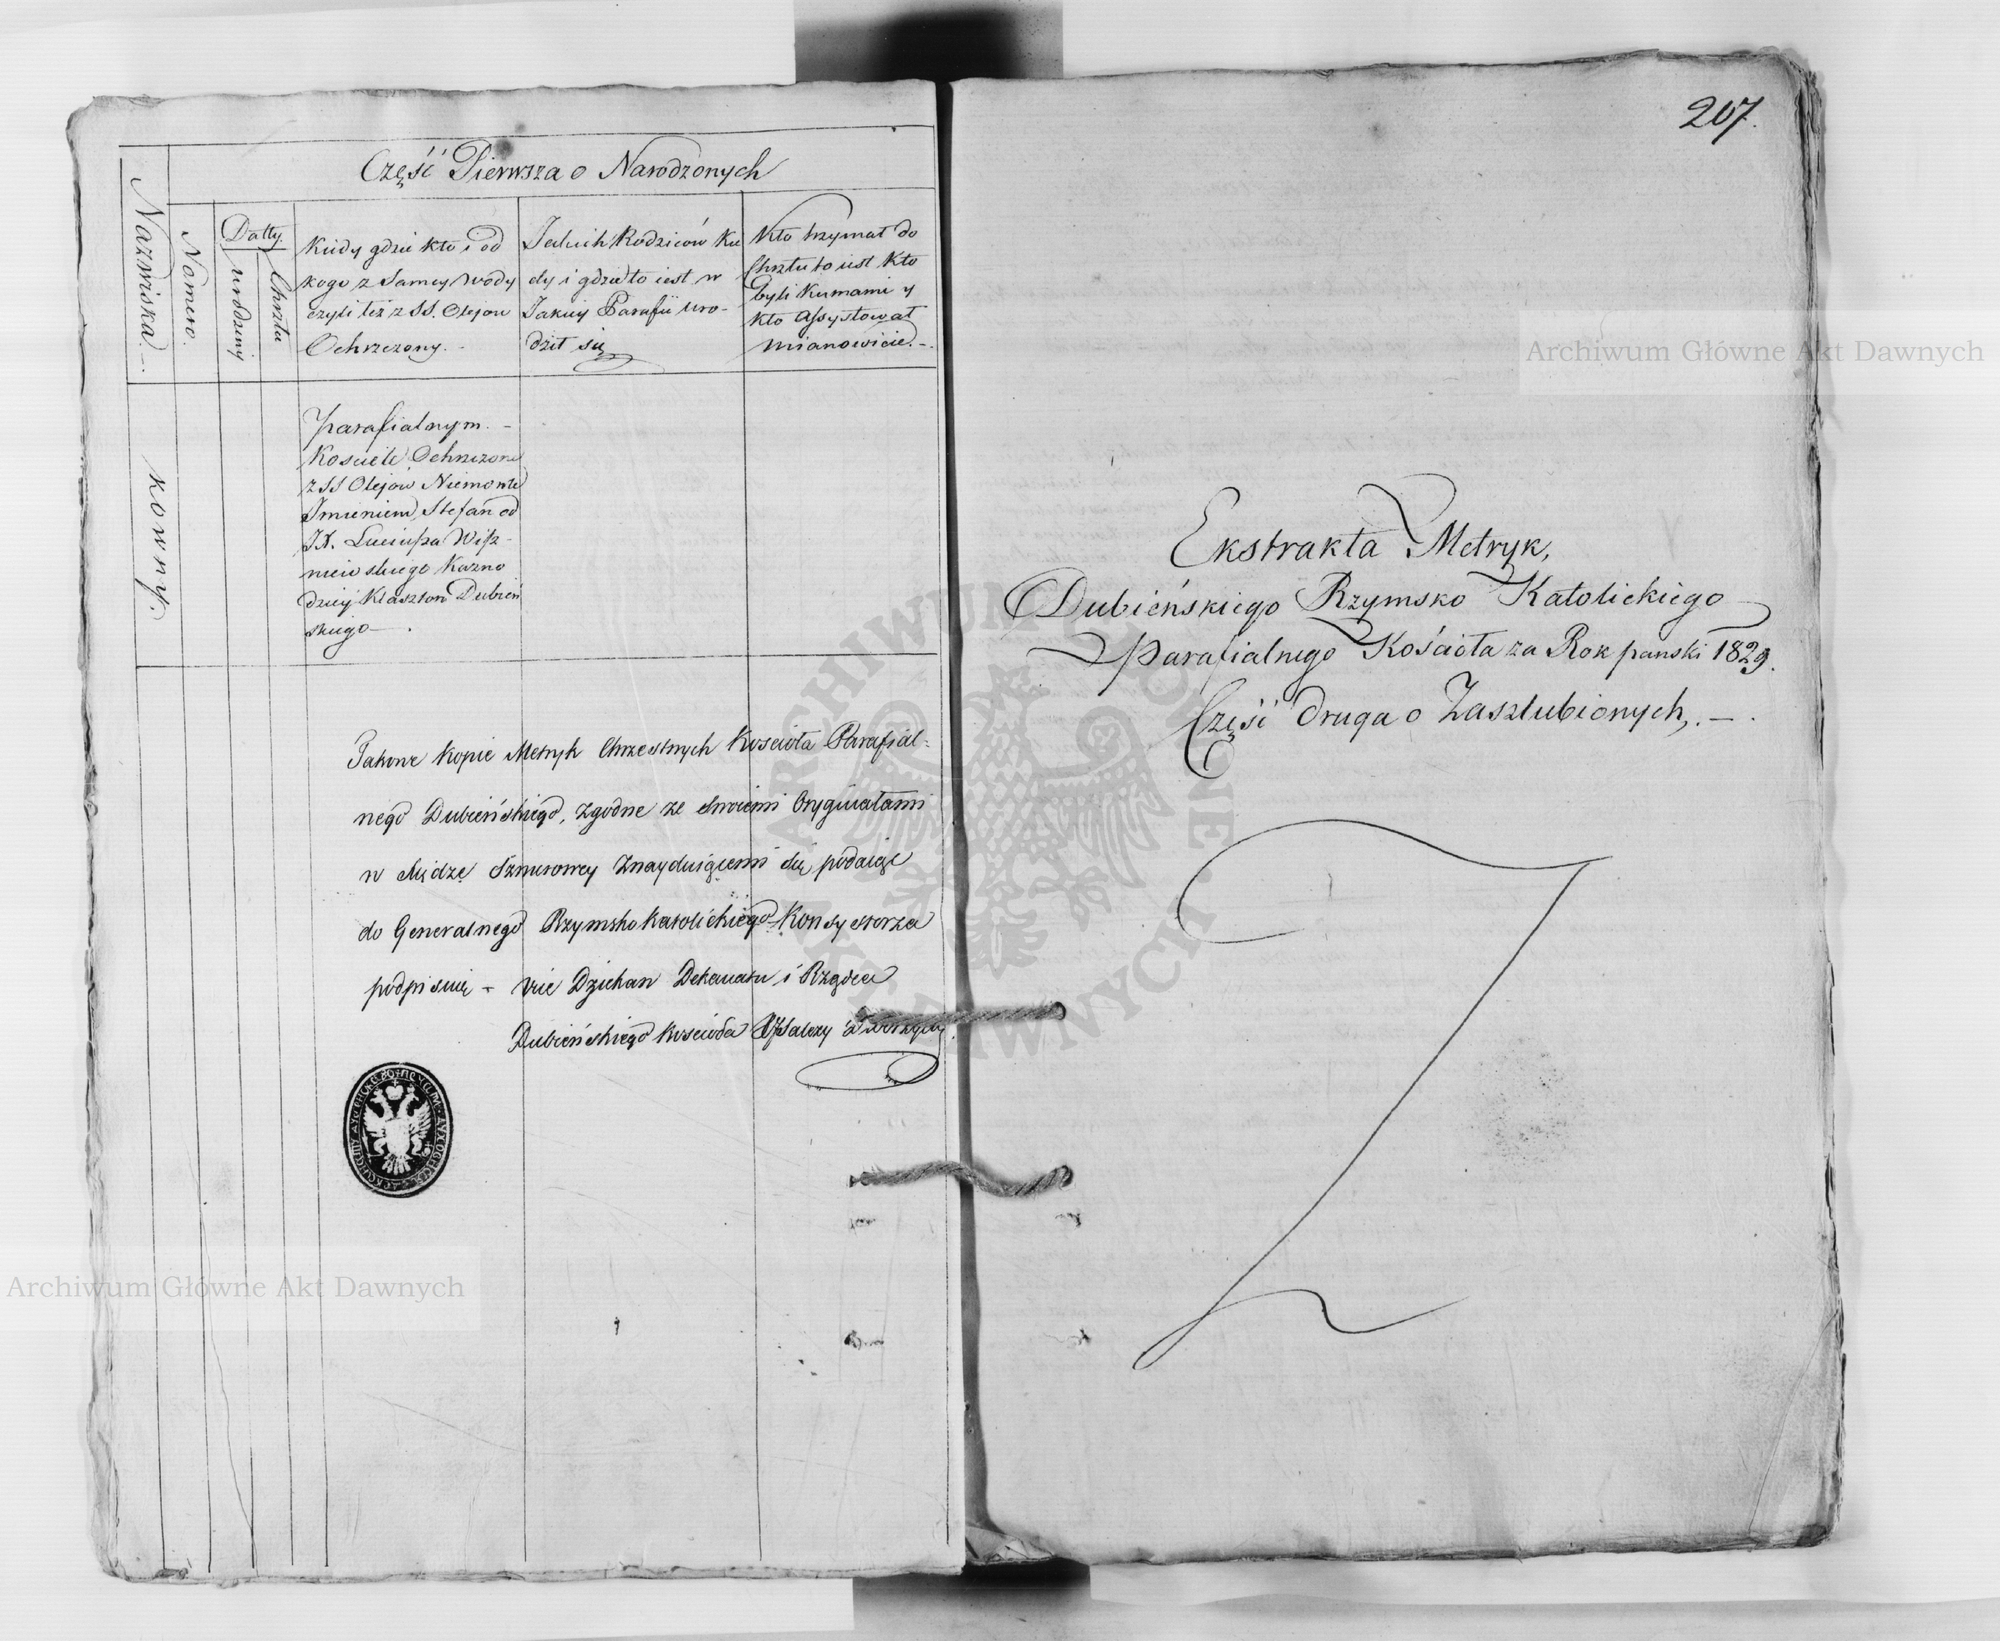 207.
Część Pierwsza o Narodzonych
Nazwiska.
Numero
Datty
urodzenia
Chrztu
Kiedy gdzie kto i od
kogo z Samey wody
czyli też z SS. Olejow
Ochrzczony.
Jakich Rodziców Kie
dy i gdzie to iest w
Jakiey Parafii uro-
dził się
Kto trzymał do
Chrztu to iest Kto
byli Kumami y
kto assystował
mianowicie.
kowny.
parafialnym.
Kościele Ochrzczone
z SS Olejow Niemowle
Imieniem Stefan od
JX. Wisz-
niewskiego Kazno
dziej Klasztoru Dubień
skiego
Takowe kopie Metryk Chrzestnych Kościoła Parafial-
nego Dubieńskiego, zgodne ze swoiemi Oryginałami
w Xiędze Sznurowey Znayduiącemi się podaiąc
do Generalnego Rzymsko Katolickiego Konsystorza
podpisuię - vice Dziekan Dekanatu i Rządca
Dubieńskiego kościoła
Ekstrakta Metryk,
Dubieńskiego Rzymsko Katolickiego
parafialnego Kościoła za Rok panski 1829.
Część druga o Zaszlubionych,.
Archiwum Główne Akt Dawnych
Archiwum Główne Akt Dawnych
ARCHIWUM GŁÓWNE AKT DAWNYCH